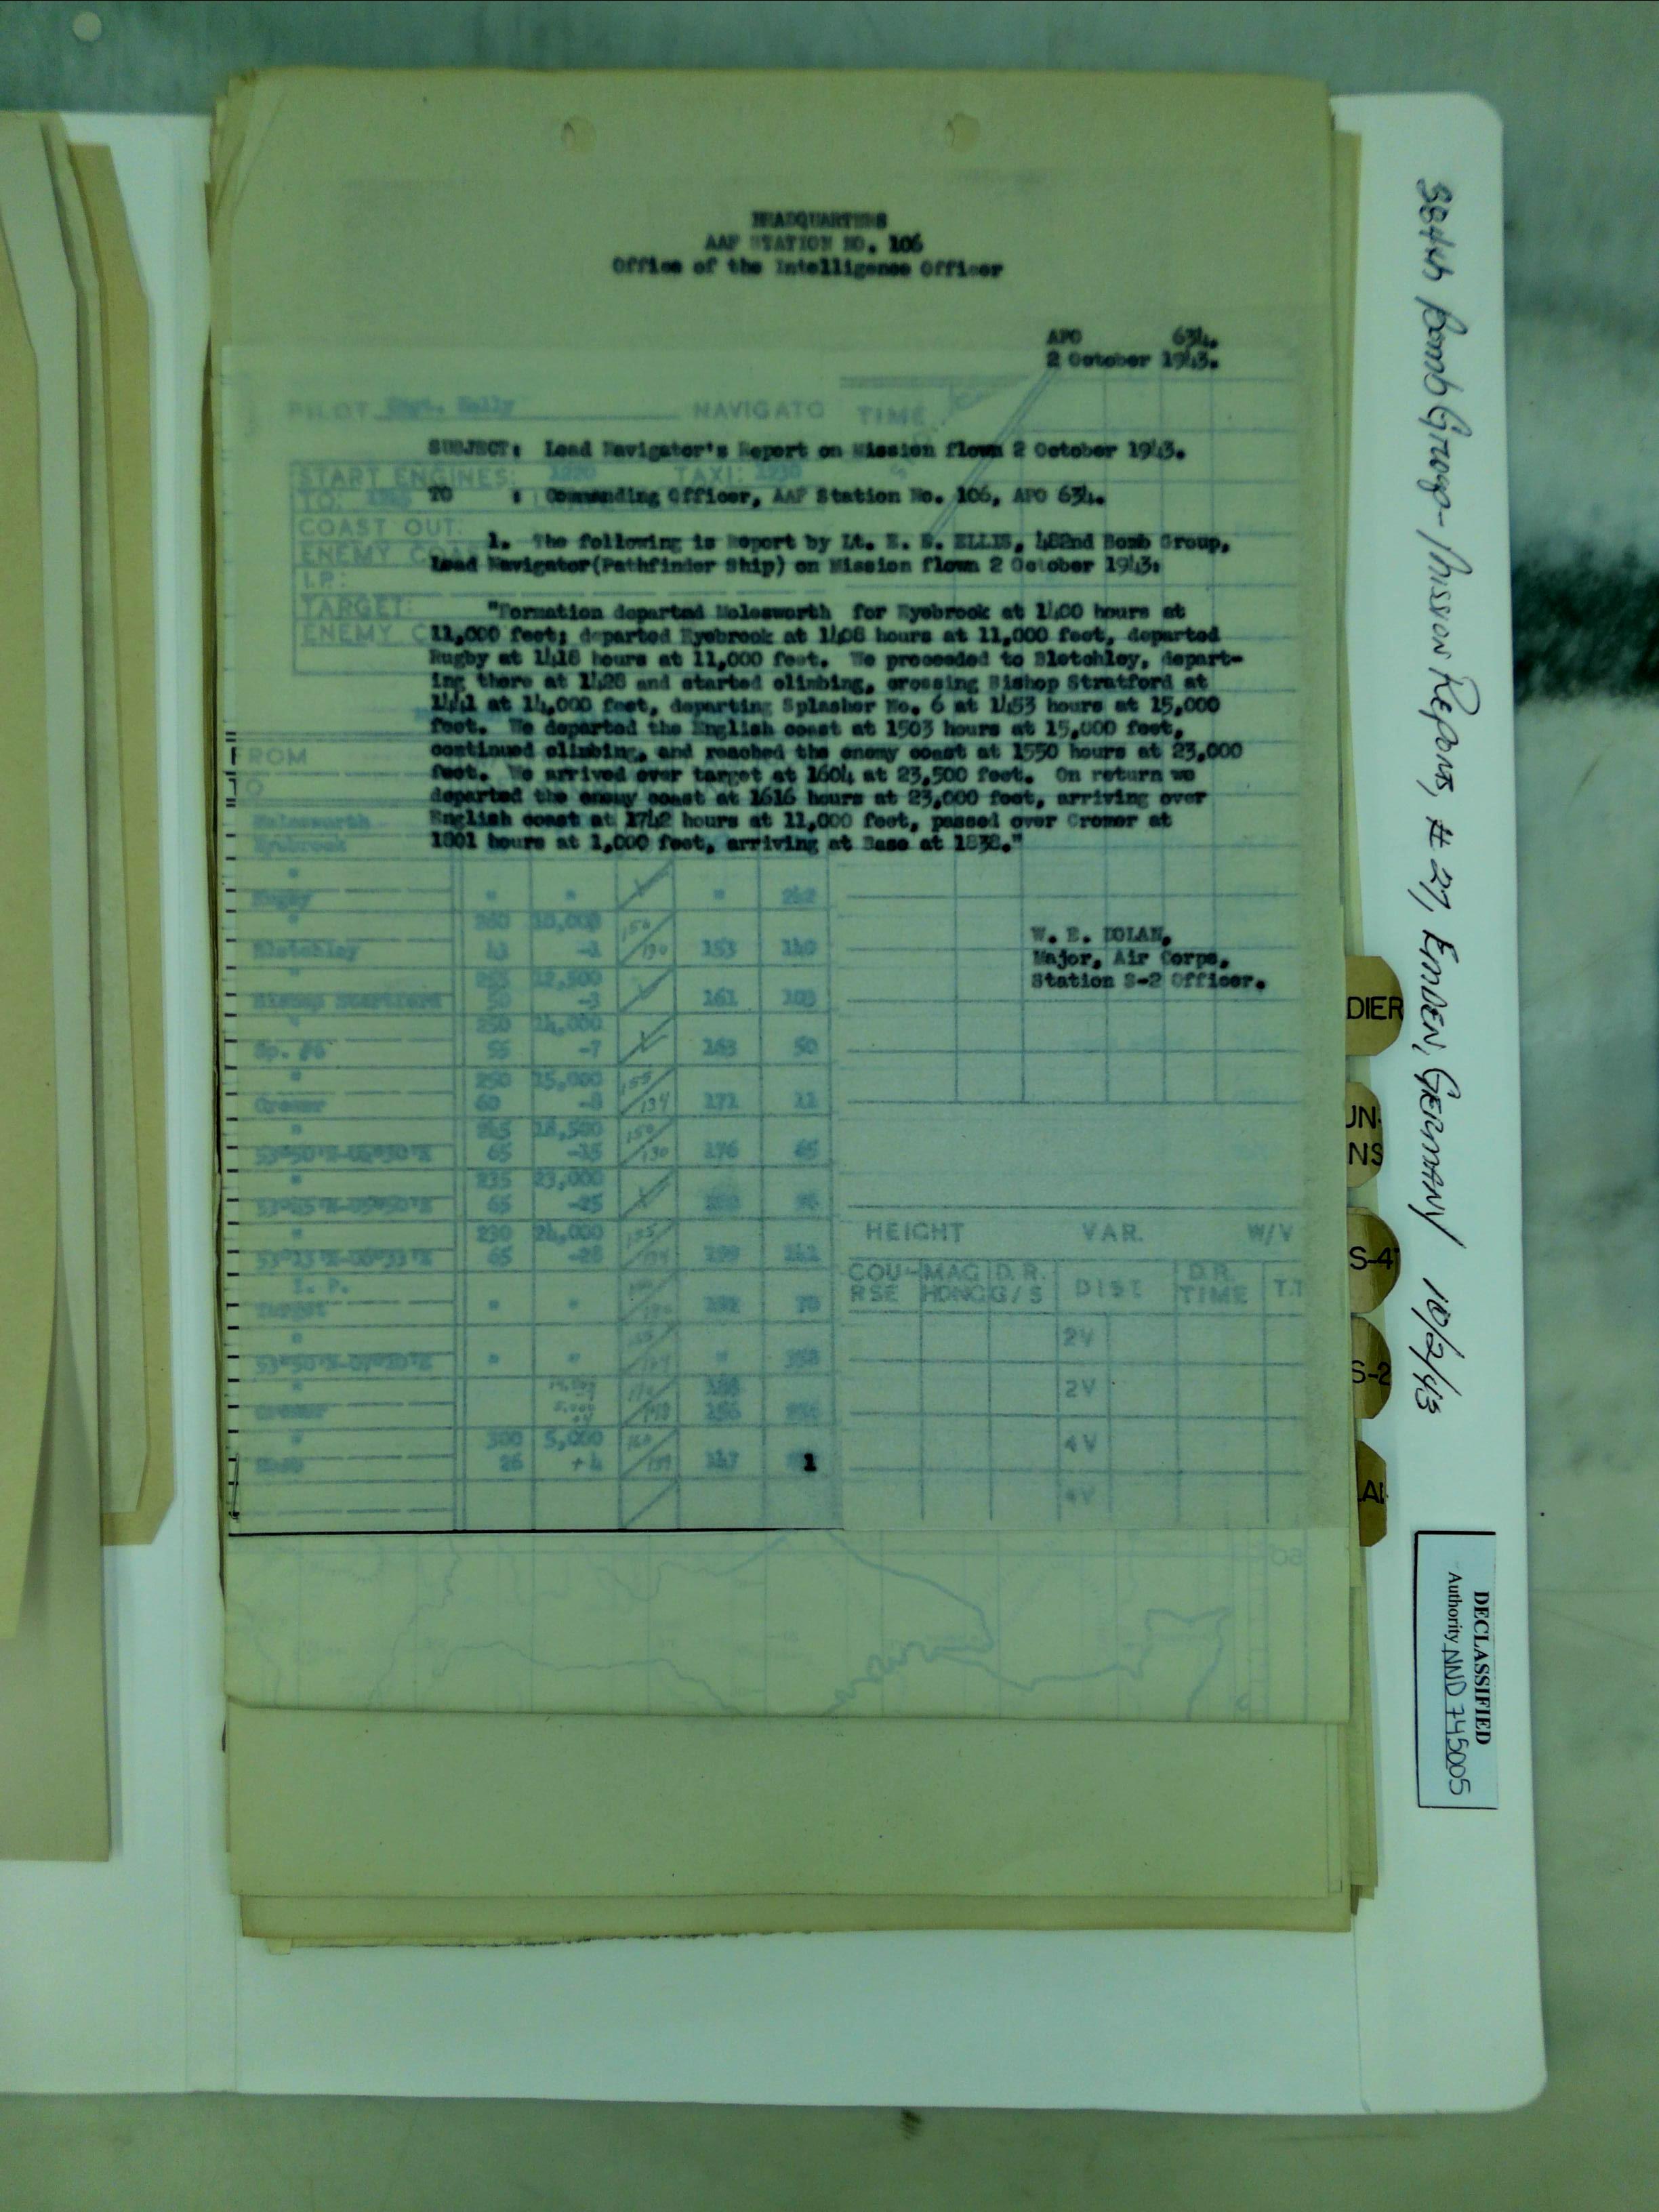 HEADQUARTERS
AAF STATION NO. 106
Office of the Intelligence Officer
APO 634.
2 October 1943.
SUBJECT: Lead Navigator's Report on Mission flown 2 October 1943.
TO : Commanding Officer, AAF Station No. 106, APO 634.
1. The following is Report by Lt. E. E. ELLIS, 482nd Bomb Group,
Lead Navigator(Pathfinder Ship) on Mission flown 2 October 1943:
"Formation departed Molesworth for Eyebrook at 1400 hours at
11,000 feet; departed Eyebrook at 1408 hours at 11,000 feet, departed
Rugby at 1418 hours at 11,000 feet. We proceeded to Bletchley, depart-
ing there at 1428 and started climbing, crossing Bishop Stratford at
1441 at 14,000 feet, departing Splasher No. 6 at 1453 hours at 15,000
feet. We departed the English coast at 1503 hours at 15,000 feet,
continued climbing, and reached the enemy coast at 1550 hours at 23,000
feet. We arrived over target at 1604 at 23,500 feet. On return we
departed the enemy coast at 1616 hours at 23,000 feet, arriving over
English coast at 1742 hours at 11,000 feet, passed over Cromer at
1801 hours at 1,000 feet, arriving at Base at 1838."
W. E. DOLAN,
Major, Air Corps,
Station S-2 Officer.
PILOT Capt. Kelly NAVIGATO TIME
START ENGINES: 1220 TAXI: 1230
TO:
COAST OUT:
ENEMY COA
I.P.:
TARGET:
ENEMY C
FROM
TO
Molesworth
Eyebrook
"
Rugby " " " 242
" 260 10,000 150
Bletchley 43 -1 130 153 140
" 255 12,500
Bishop Startford 50 -3 161 103
" 250 14,000
Sp. #6 55 -7 163 50
" 250 15,000 155
Cromer 60 -8 134 171 11
" 245 18,500 150
65 -15 130 176 65
" 235 23,000
65 -25
" 230 24,000
65 -28
I. P.
Target " "
"
" "
"
Cromer 156
" 300 5,000 160
Base 26 +4 139 147
1
HEIGHT VAR. W/V
COU-RSE MAG HDNG D.R. G/S DIST D.R. TIME T.T
2V
2V
4V
4V
384th Bomb Group- Mission Reports, #27, EMDEN, GERMANY 10/2/43
DIER
UN-
NS
S-4
S-2
LAI
DECLASSIFIED
Authority NND 745005